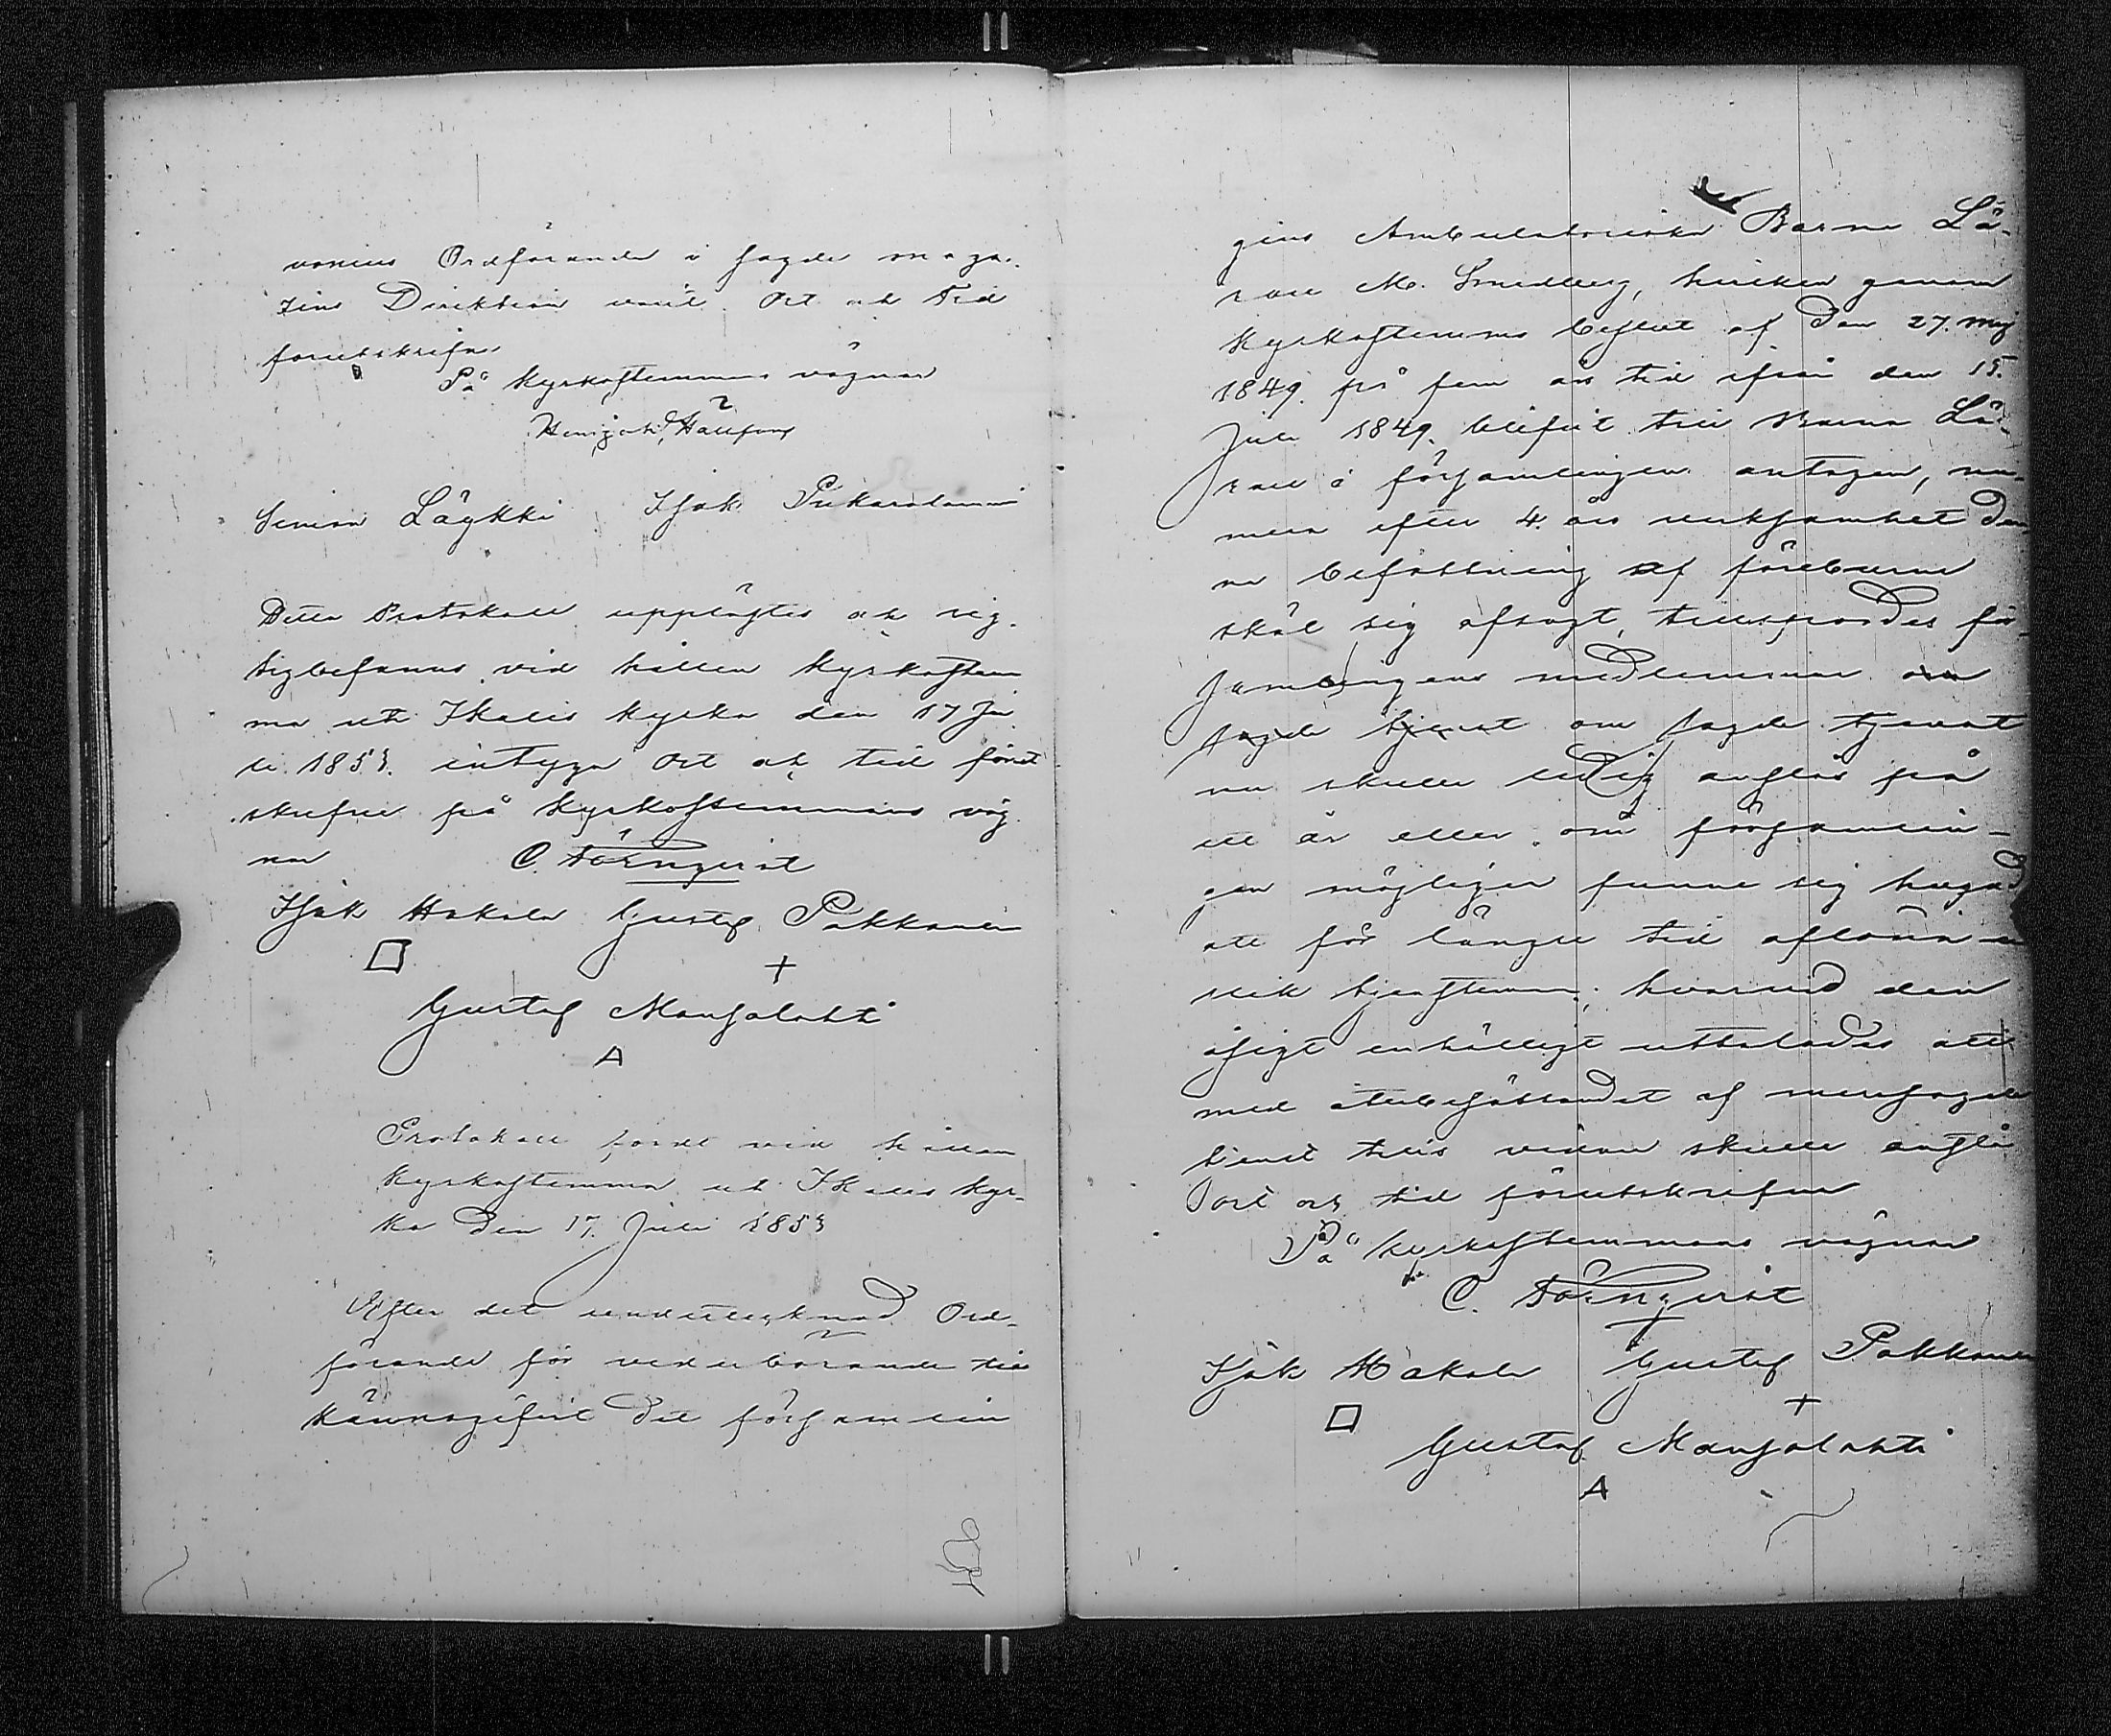 vonius Ordförande i sagde maga-
zins Direktion valt. Ort och Tid
förutskrifne
På Kyrkostemmans vägnar
Hällfors
Simon Läykki Isak
Detta Protokoll upplästes och rig-
tigbefanns vid hållen Kyrkostem
ma uti Ikalis kyrka den 17 Ju
li 1853. intyga Ort och tid förut
skrefne på Kyrkostemmans väg
nar C. Törnqvist
Isak Hakala Gustaf Pakkanen
+
Gustaf Mansolahti
A
Protokoll fördt vid hållen
Kyrkostemma uti Ikalis Kyr-
ka den 17. Juli 1853
Efter det undertecknad Ord-
förande för vederbörande till
kännagifvit det församlin
gens Ambulatoriska Barna Lä-
rare M. Smedberg, hvilken genom
Kyrkostemmo beslut af den 27. Maj
1849. på fem års tid ifrån den 15.
Juli 1849. blifvit till Barna Lä-
rare i församlingen antagen, nu-
mera efter 4. års verksamhet den
na befattning af föreburne
skäl sig afsagt, tillspordes för-
samlingens medlemmar om
sagde tjenst om sagde tjenst
nu skulle ledig anslås på
ett år eller om församlin-
gen möjligen funne sig hugad
att för längre tid aflöna en
slik tjensteman; hvarvid den
åsigt enhälligt uttalades att
med återbesättandet af mersagde
tjenst tills vidare skulle anstå
Ort och tid förutskrifne
På Kyrkostemmans vägnar
C. Törnqvist
Isak Hakala Gustaf Pakkanen
+
Gustaf Mansolahti
A